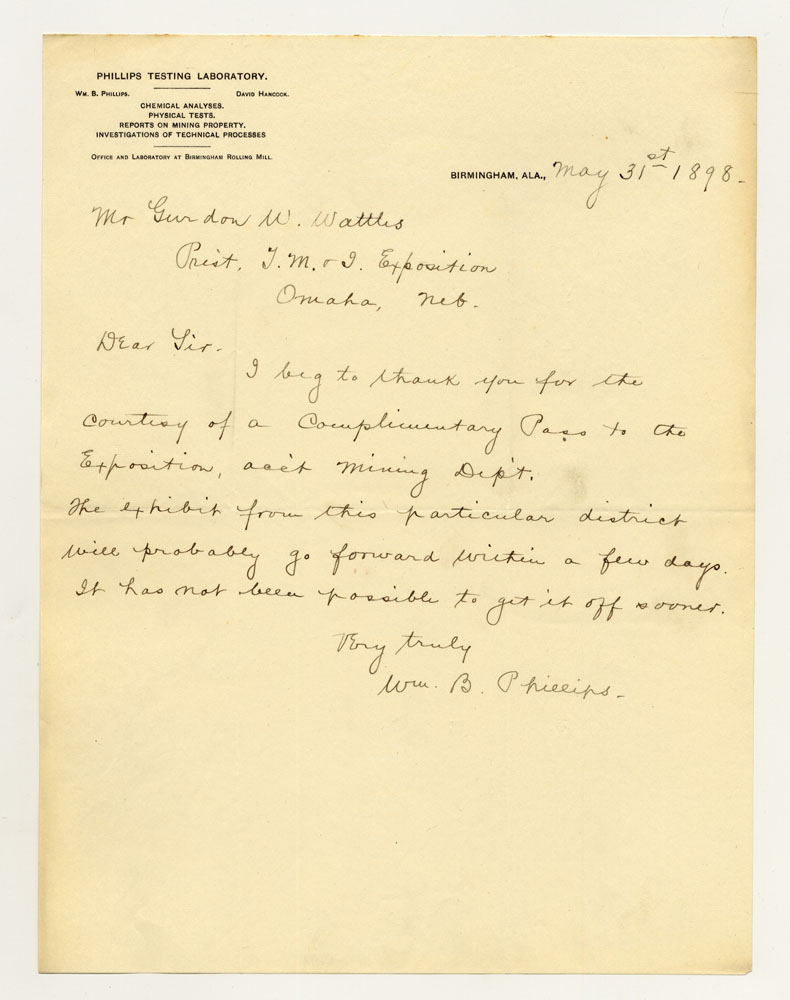 PHILLIPS TESTING LABORATORY.
WM. B. PHILLIPS. DAVID HANCOCK.
CHEMICAL ANALYSES.
PHYSICAL TESTS.
REPORTS ON MINING PROPERTY.
INVESTIGATIONS OF TECHNICAL PROCESSES
OFFICE AND LABORATORY AT BIRMINGHAM ROLLING MILL.
BIRMINGHAM, ALA., May 31st 1898-
Mr Gurdon W. Wattles
Prest. T. M. & I. Exposition
Omaha, Neb-
Dear Sir-
I beg to thank you for the
courtesy of a Complimentary Pass to the
Exposition, acc't Mining Dep't.
The exhibit from this particular district
will probably go forward within a few days.
It has not been possible to get it off sooner.
Very truly
Wm. B. Phillips-